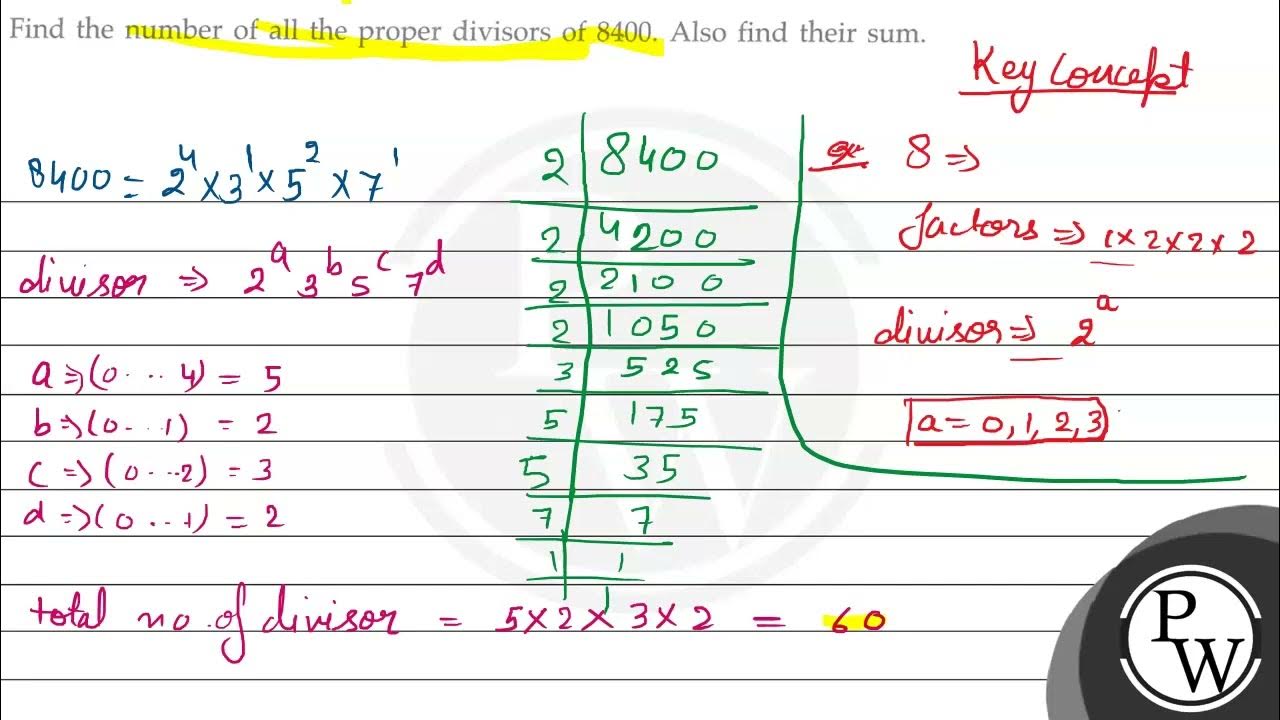 Find the number of all the proper divisors of 8400. Also find their sum.
Key Concept
8400 = 2⁴ × 3¹ × 5² × 7¹
divisor ⇒ 2ᵃ 3ᵇ 5ᶜ 7ᵈ
a ⇒ (0 ... 4) = 5
b ⇒ (0 - .. 1) = 2
c ⇒ (0 - .. 2) = 3
d ⇒ (0 ... 1) = 2
2 | 8400
2 | 4200
2 | 2100
2 | 1050
3 | 525
5 | 175
5 | 35
7 | 7
1 | 1
1
8 ⇒
factors ⇒ 1 × 2 × 2 × 2
divisor ⇒ 2ᵃ
a = 0, 1, 2, 3
total no. of divisor = 5 × 2 × 3 × 2 = 60
PW
PW